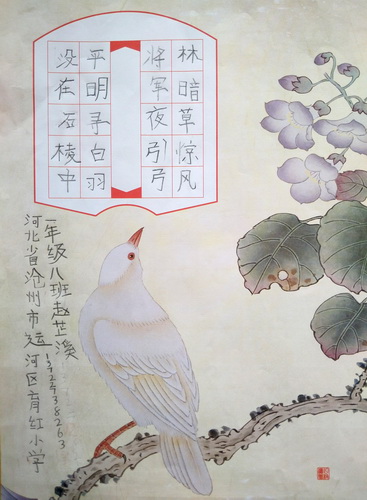 林暗草惊风
将军夜引弓
平明寻白羽
没在石棱中
一年级八班赵芷溪
河北省沧州市运河区育红小学